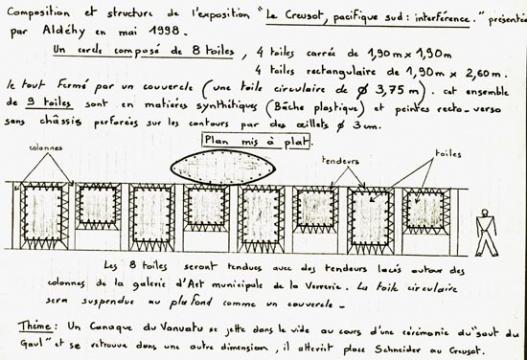 Composition et structure de l'exposition "Le Creusot, pacifique sud : interférence." présentée
par Aldéhy en mai 1998.
Un cercle composé de 8 toiles, 4 toiles carrée de 1,90m x 1,90m
4 toiles rectangulaire de 1,90m x 2,60m.
le tout fermé par un couvercle (une toile circulaire de ø 3,75 m). cet ensemble
de 9 toiles sont en matières synthétiques (Bâche plastique) et peintes recto-verso
sans châssis perforées sur les contours par des œillets ø 3 cm.
Plan mis à plat.
colonnes
tendeurs
toiles
Les 8 toiles seront tendues avec des tendeurs lacés autour des
colonnes de la galerie d'Art municipale de la Verrerie. La toile circulaire
sera suspendue au plafond comme un couvercle -
Thème : Un Canaque du Vanuatu se jette dans le vide au cours d'une cérémonie du "saut du
Gaul" et se retrouve dans une autre dimension, il atterit place Schneider au Creusot.